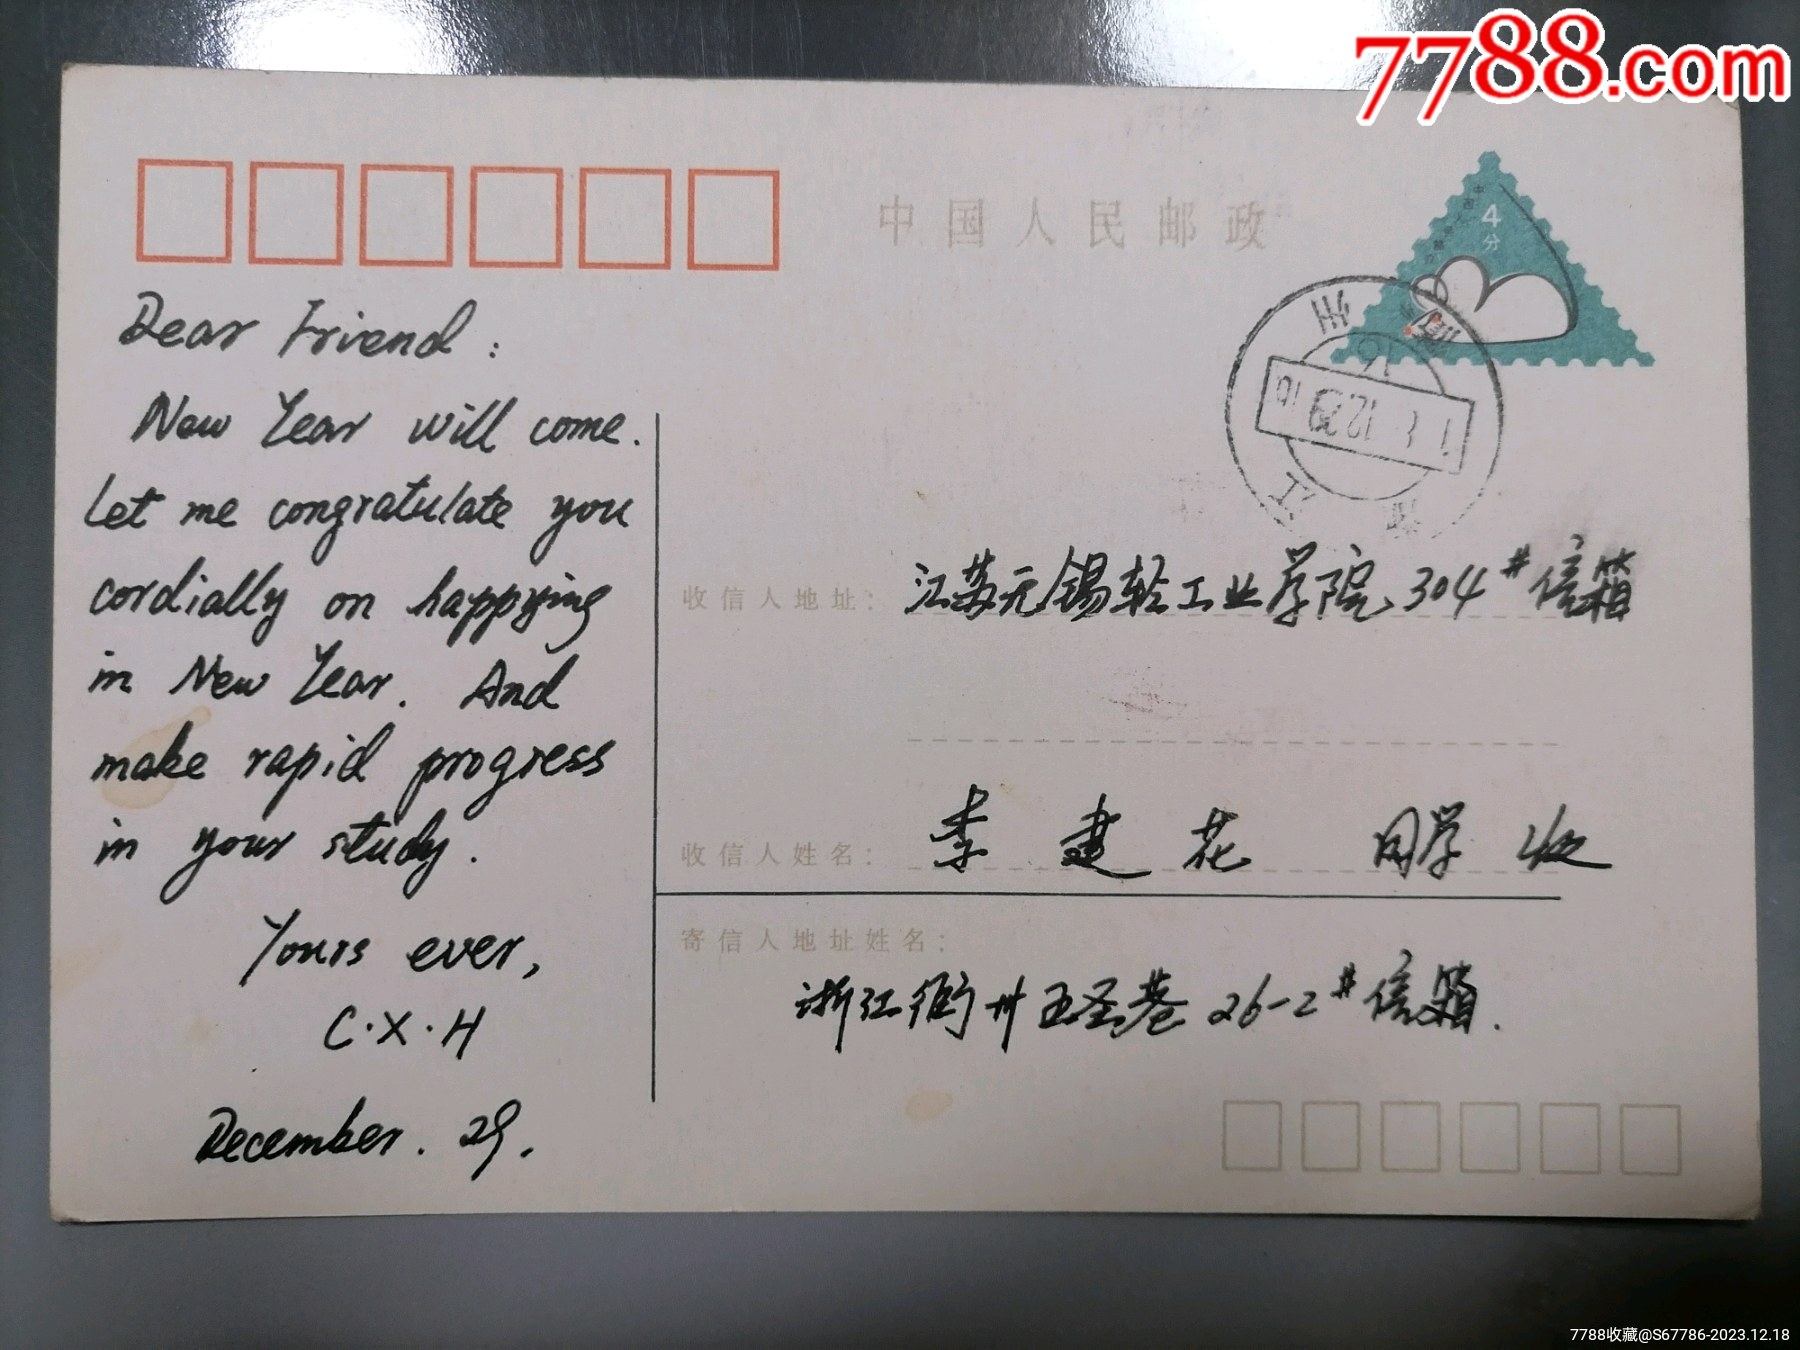 7788.com
中国人民邮政
4
分
Dear Friend:
New Year will come.
Let me congratulate you
cordially on happying
in New Year. And
make rapid progress
in your study.
Yours ever,
C·X·H
December. 29.
收信人地址: 江苏无锡轻工业学院 304# 信箱
收信人姓名: 李建花 同学 收
寄信人地址姓名:
浙江衢州五圣巷 26-2# 信箱.
7788收藏@S67786-2023.12.18